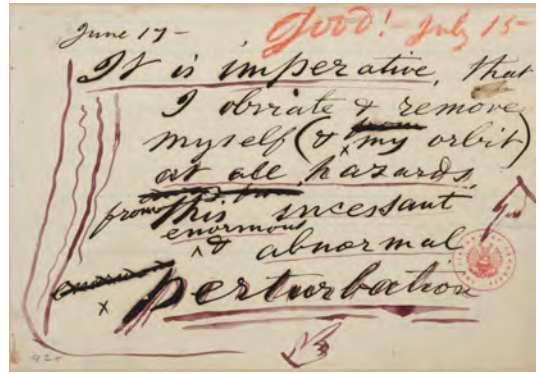 June 17 -
Good! - July 15 -
It is imperative, that
I obviate & remove
myself (& my orbit)
at all hazards,
from this incessant
enormous
& abnormal
Perturbation